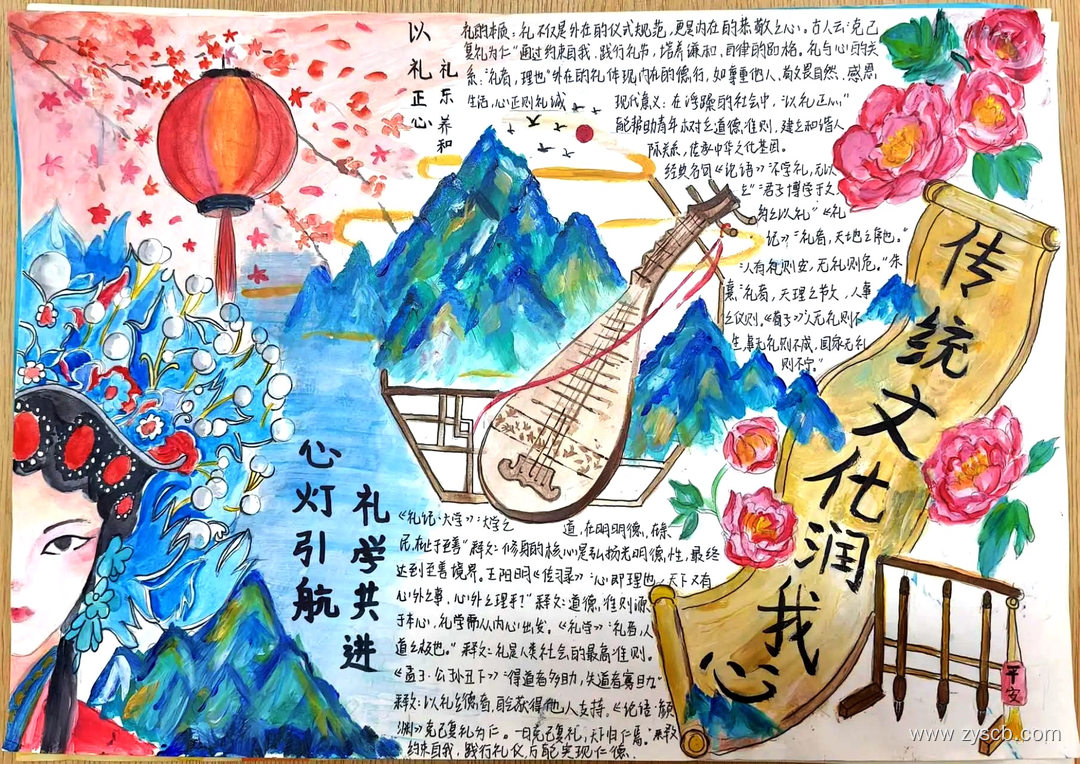 以礼正心
礼乐养和
礼的本质：礼不仅是外在的仪式规范，更是内在的恭敬之心。古人云“克己
复礼为仁”通过约束自我、践行礼节，培养谦和、自律的品格。礼与心的关
系：“礼者，理也”外在的礼体现内在的德行，如尊重他人、敬畏自然、感恩
生活，心正则礼诚
现代意义：在浮躁的社会中，“以礼正心”
能帮助青年树立道德准则，建立和谐人
际关系，传承中华文化基因。
经典名句《论语》“不学礼，无以
立”“君子博学于文，
约之以礼”《礼
记》“礼者，天地之序也。”
“人有礼则安，无礼则危。”朱
熹“礼者，天理之节文，人事
之仪则。《荀子》“人无礼则不
生，事无礼则不成，国家无礼
则不宁。”
传统文化润我心
心灯引航
礼学共进
《礼记·大学》“大学之道，在明明德，在亲
民，在止于至善”释文：修身的核心是弘扬光明德性，最终
达到至善境界。王阳明《传习录》“心即理也，天下又有
心外之事，心外之理乎？”释文：道德准则源
于本心，礼学需从内心出发。《礼学》“礼者，人
道之极也。”释文：礼是人类社会的最高准则。
《孟子·公孙丑下》“得道者多助，失道者寡助”
释文：以礼立德者，自会获得他人支持。《论语·颜
渊》克己复礼为仁。一日克己复礼，天下归仁焉。释文
约束自我，践行礼仪，方能实现仁德。
平安
www.zyscb.com